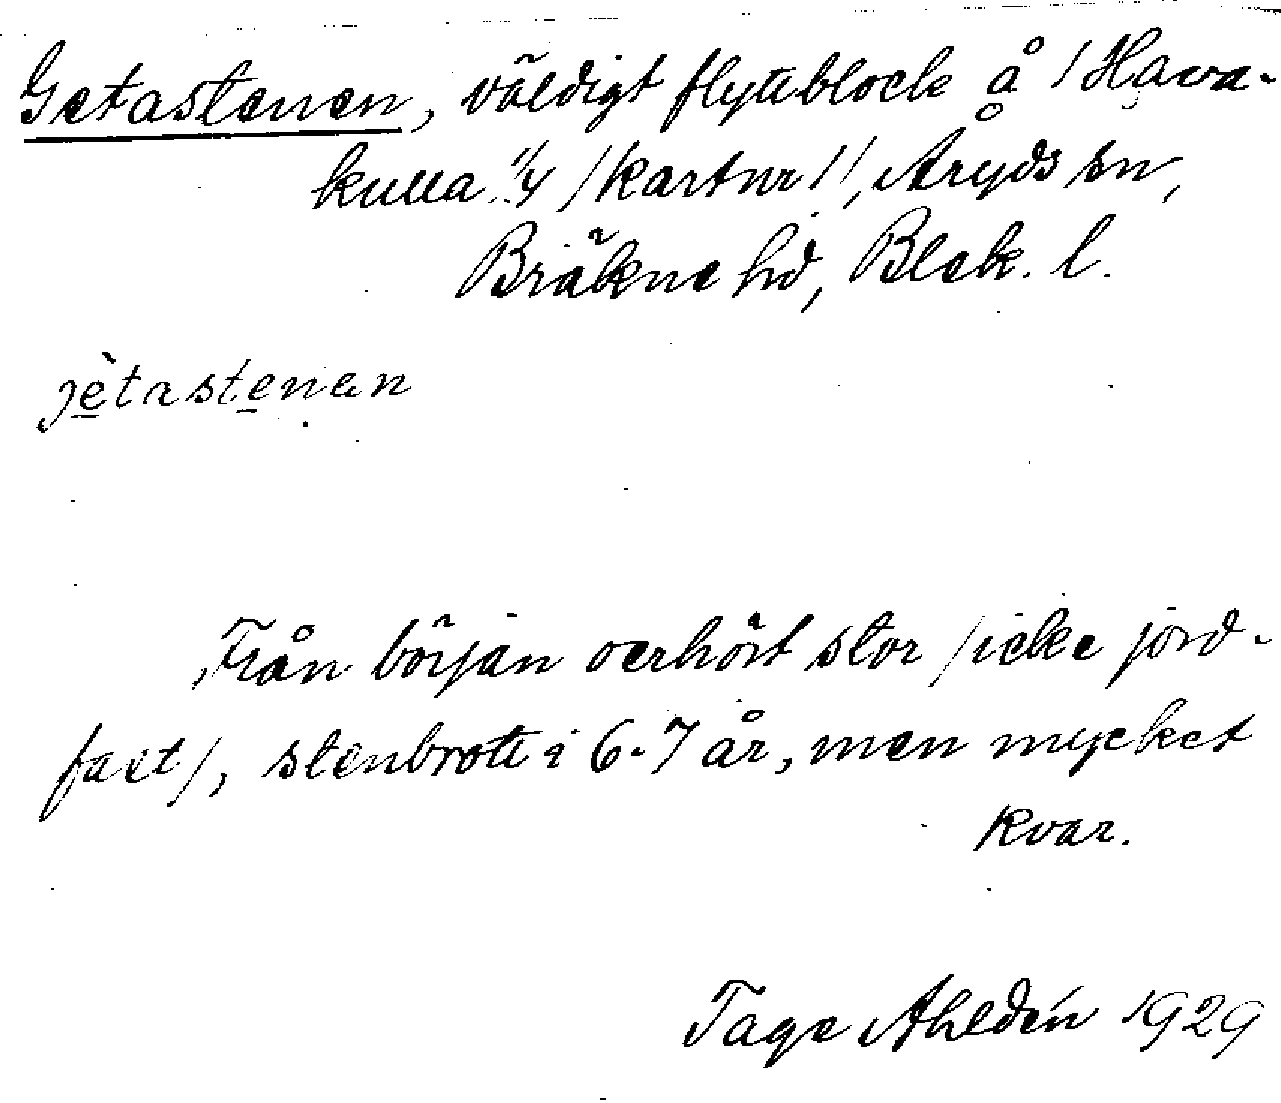 Getastenen, väldigt flyttblock å /Hava-
kulla 1/4 /kartnr 1/, Åryds sn,
Bräkne hd, Blek. l.
jètastenan
Från början oerhört stor /icke jord-
fast/, stenbrott i 6-7 år, men mycket
kvar.
Tage Ahldén 1929